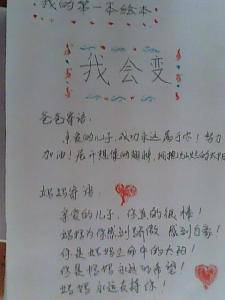 我的第一本绘本
我会变
爸爸寄语：
亲爱的儿子，成功永远属于你！努力
加油！展开想像的翅膀，拥抱灿烂的太阳
妈妈寄语：
亲爱的儿子，你真的很棒！
妈妈为你感到骄傲 感到自豪！
你是妈妈生命中的太阳！
你是妈妈永远的希望！
妈妈永远支持你！